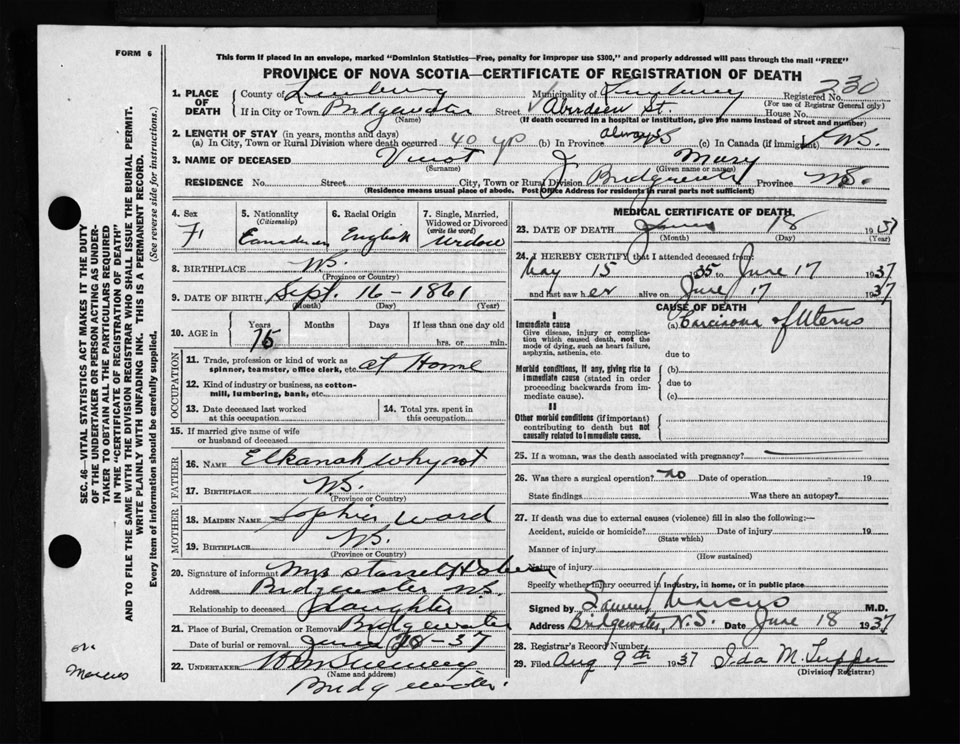 FORM 6
This form if placed in an envelope, marked "Dominion Statistics—Free, penalty for improper use $300," and properly addressed will pass through the mail "FREE"
PROVINCE OF NOVA SCOTIA—CERTIFICATE OF REGISTRATION OF DEATH
1. PLACE OF DEATH County of Lunenburg Municipality of Lunenburg Registered No. 230
(For use of Registrar General only)
If in City or Town Bridgewater Street Aberdeen St. House No.
(Name) (If death occurred in a hospital or institution, give the name instead of street and number)
2. LENGTH OF STAY (in years, months and days)
(a) In City, Town or Rural Division where death occurred 40 yrs (b) In Province always (c) In Canada (if immigrant) N.S.
3. NAME OF DECEASED J Mary
(Surname) (Given name or names)
RESIDENCE No. Street City, Town or Rural Division Bridgewater Province N.S.
(Residence means usual place of abode. Post Office Address for residents in rural parts not sufficient)
4. Sex F
5. Nationality (Citizenship) Canadian
6. Racial Origin English
7. Single, Married, Widowed or Divorced (write the word) widow
8. BIRTHPLACE N.S.
(Province or Country)
9. DATE OF BIRTH Sept. 16 - 1861
(Month) (Day) (Year)
10. AGE in Years 75 Months Days If less than one day old
hrs. or min.
OCCUPATION
11. Trade, profession or kind of work as spinner, teamster, office clerk, etc. at Home
12. Kind of industry or business, as cotton-mill, lumbering, bank, etc.
13. Date deceased last worked at this occupation
14. Total yrs. spent in this occupation
15. If married give name of wife or husband of deceased
FATHER
16. NAME Elkanah Whynot
17. BIRTHPLACE N.S.
(Province or Country)
MOTHER
18. MAIDEN NAME Sophia Ward
19. BIRTHPLACE N.S.
(Province or Country)
20. Signature of informant Mrs
Address Bridgewater N.S.
Relationship to deceased daughter
21. Place of Burial, Cremation or Removal Bridgewater
Date of burial or removal June - 37
22. UNDERTAKER
(Name and address)
Bridgewater.
MEDICAL CERTIFICATE OF DEATH
23. DATE OF DEATH June 18 1937
(Month) (Day) (Year)
24. I HEREBY CERTIFY that I attended deceased from
May 15 1935 to June 17 1937
and last saw her alive on June 17 1937
CAUSE OF DEATH
I
Immediate cause (a) Carcinoma of Uterus
Give disease, injury or complication which caused death, not the mode of dying, such as heart failure, asphyxia, asthenia, etc.
due to
Morbid conditions, if any, giving rise to immediate cause (stated in order proceeding backwards from immediate cause).
(b)
due to
(c)
II
Other morbid conditions (if important) contributing to death but not causally related to immediate cause.
25. If a woman, was the death associated with pregnancy? —
26. Was there a surgical operation? no Date of operation 19
State findings Was there an autopsy?
27. If death was due to external causes (violence) fill in also the following:—
Accident, suicide or homicide? Date of injury 19
(State which)
Manner of injury
(How sustained)
Nature of injury
Specify whether injury occurred in industry, in home, or in public place
Signed by Samuel Marcus M.D.
Address Bridgewater, N.S. Date June 18 1937
28. Registrar's Record Number
29. Filed Aug 9th 1937 Ida M. Tupper
(Division Registrar)
SEC. 46—VITAL STATISTICS ACT MAKES IT THE DUTY
OF THE UNDERTAKER OR PERSON ACTING AS UNDER-
TAKER TO OBTAIN ALL THE PARTICULARS REQUIRED
IN THE "CERTIFICATE OF REGISTRATION OF DEATH"
AND TO FILE THE SAME WITH THE DIVISION REGISTRAR WHO SHALL ISSUE THE BURIAL PERMIT.
WRITE PLAINLY WITH UNFADING INK. THIS IS A PERMANENT RECORD.
Every item of information should be carefully supplied. (See reverse side for instructions.)
Marcus